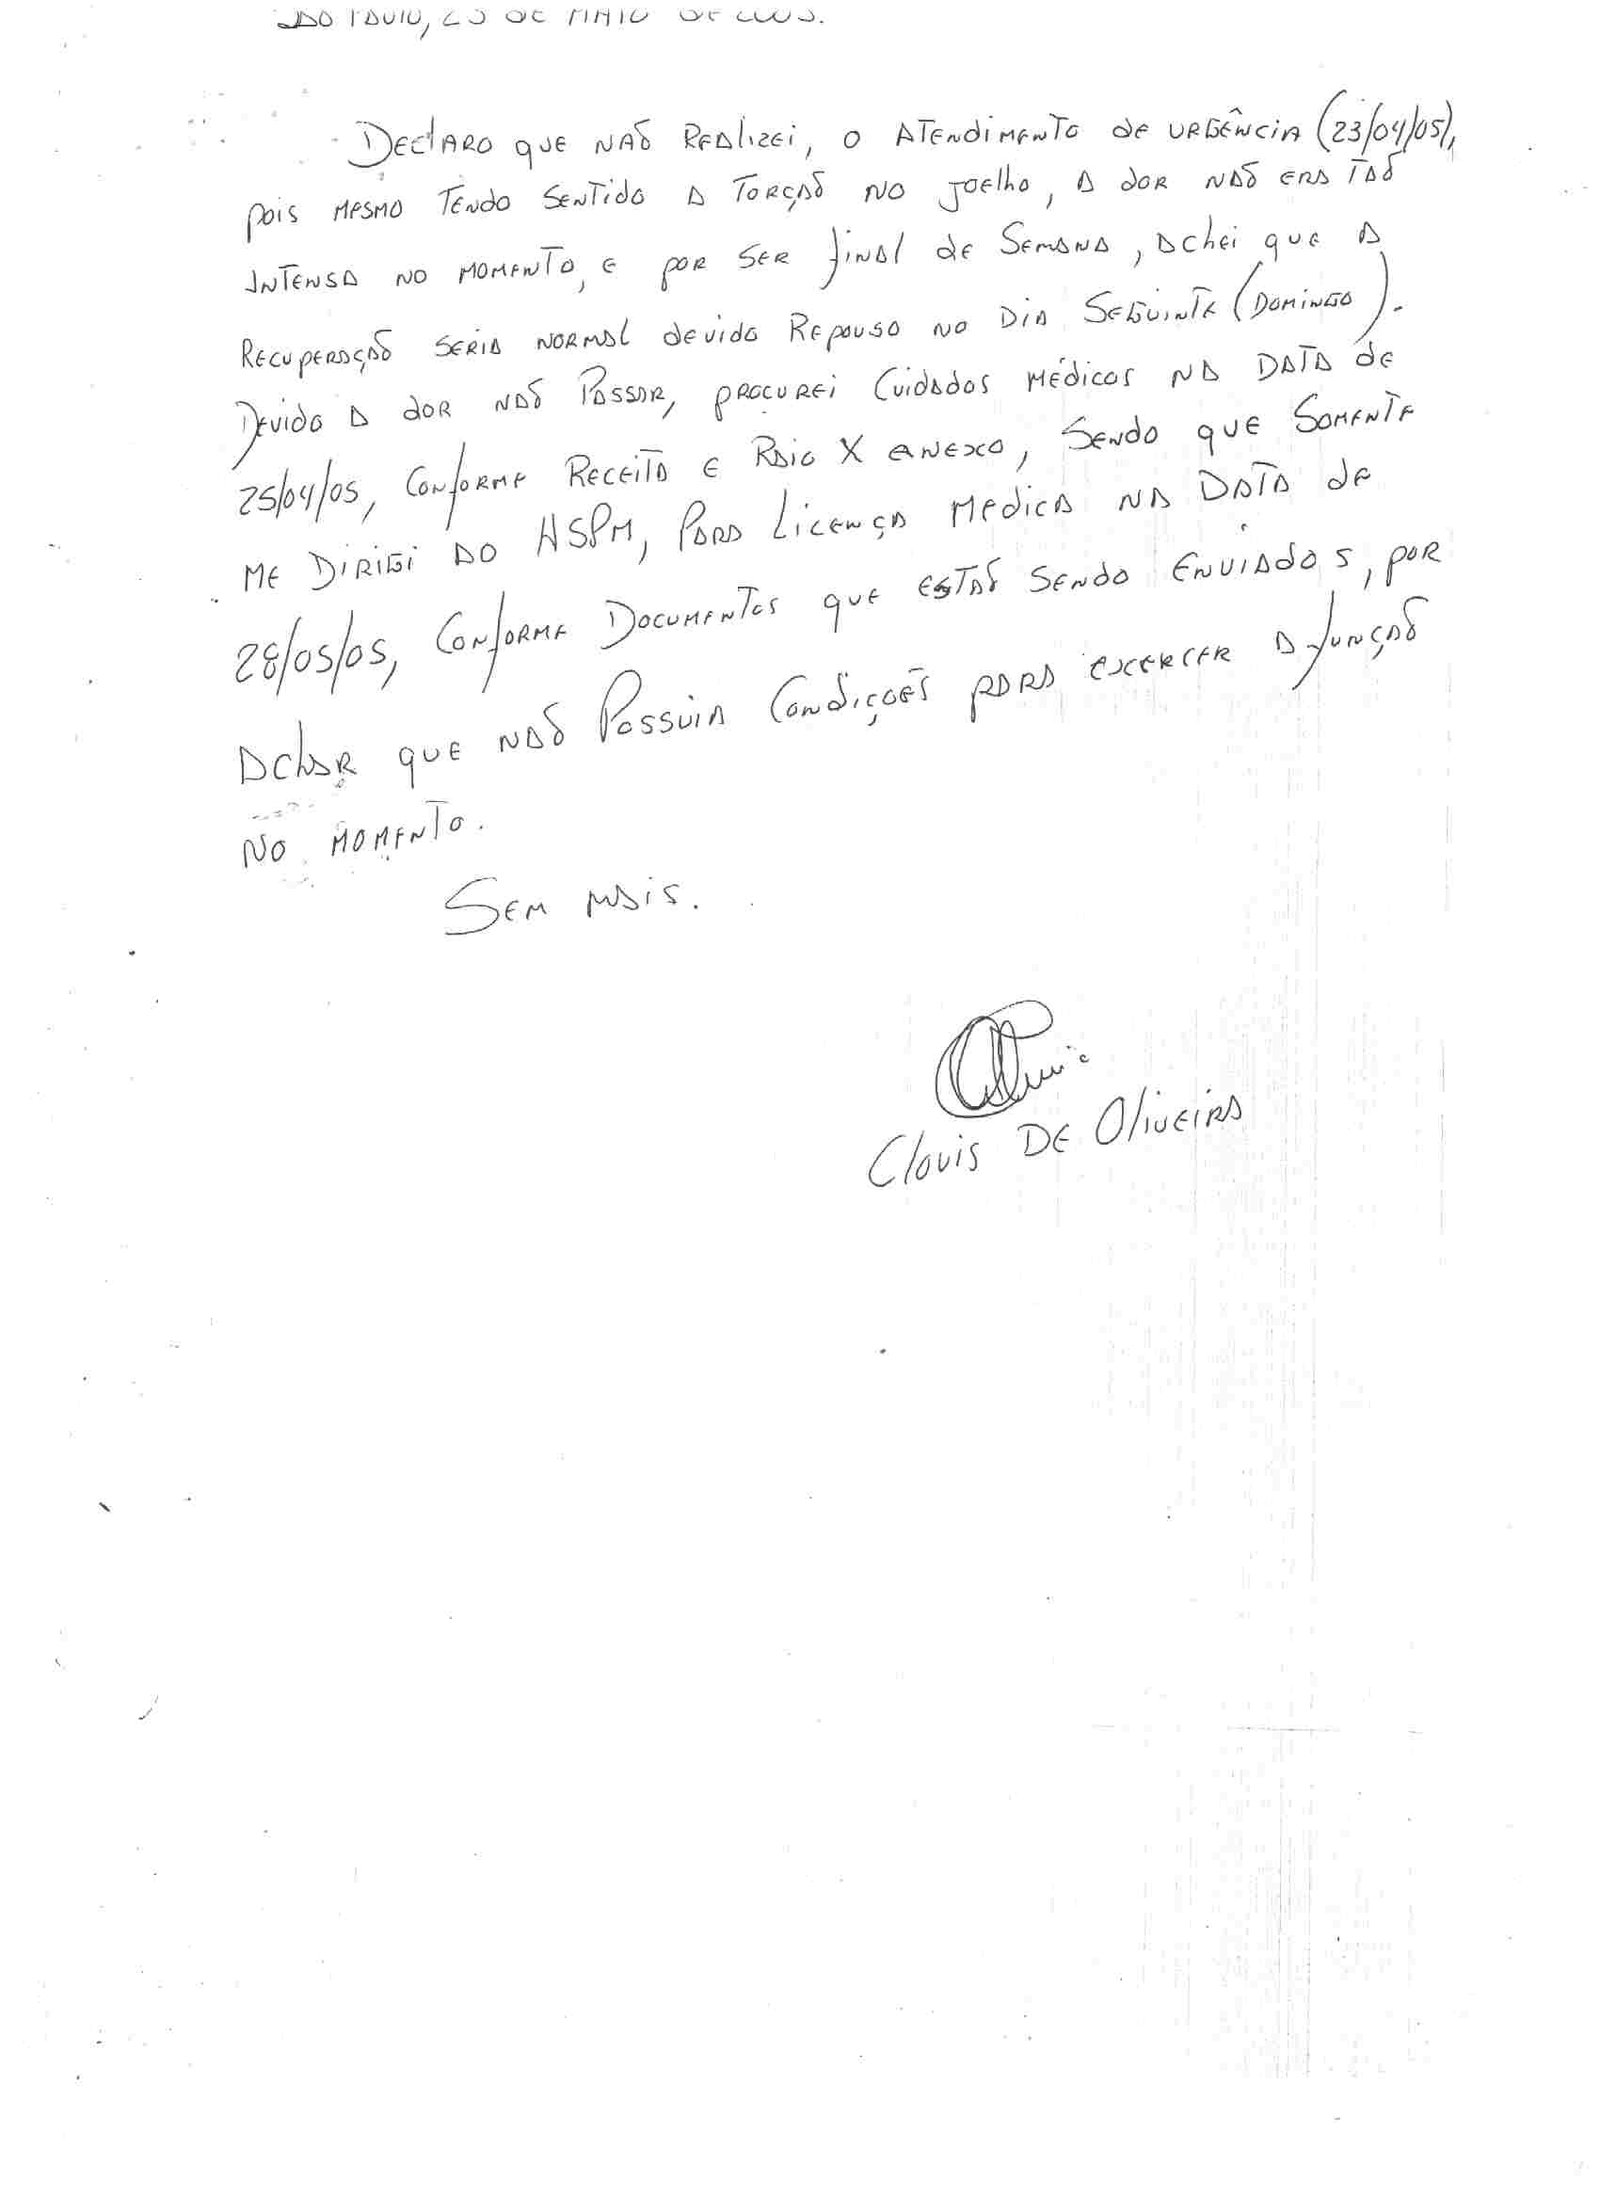 São Paulo, 25 de Maio de 2005.
Declaro que não realizei, o atendimento de urgência (23/04/05),
pois mesmo tendo sentido a torção no joelho, a dor não era tão
intensa no momento, e por ser final de semana, achei que a
recuperação seria normal devido repouso no dia seguinte (domingo).
Devido a dor não passar, procurei cuidados médicos na data de
25/04/05, conforme receita e raio X anexo, sendo que somente
me dirigi ao HSPM, para licença medica na data de
28/05/05, conforme documentos que estão sendo enviados, por
achar que não possuia condições para excercer a função
no momento.
Sem mais.
Clovis de Oliveira